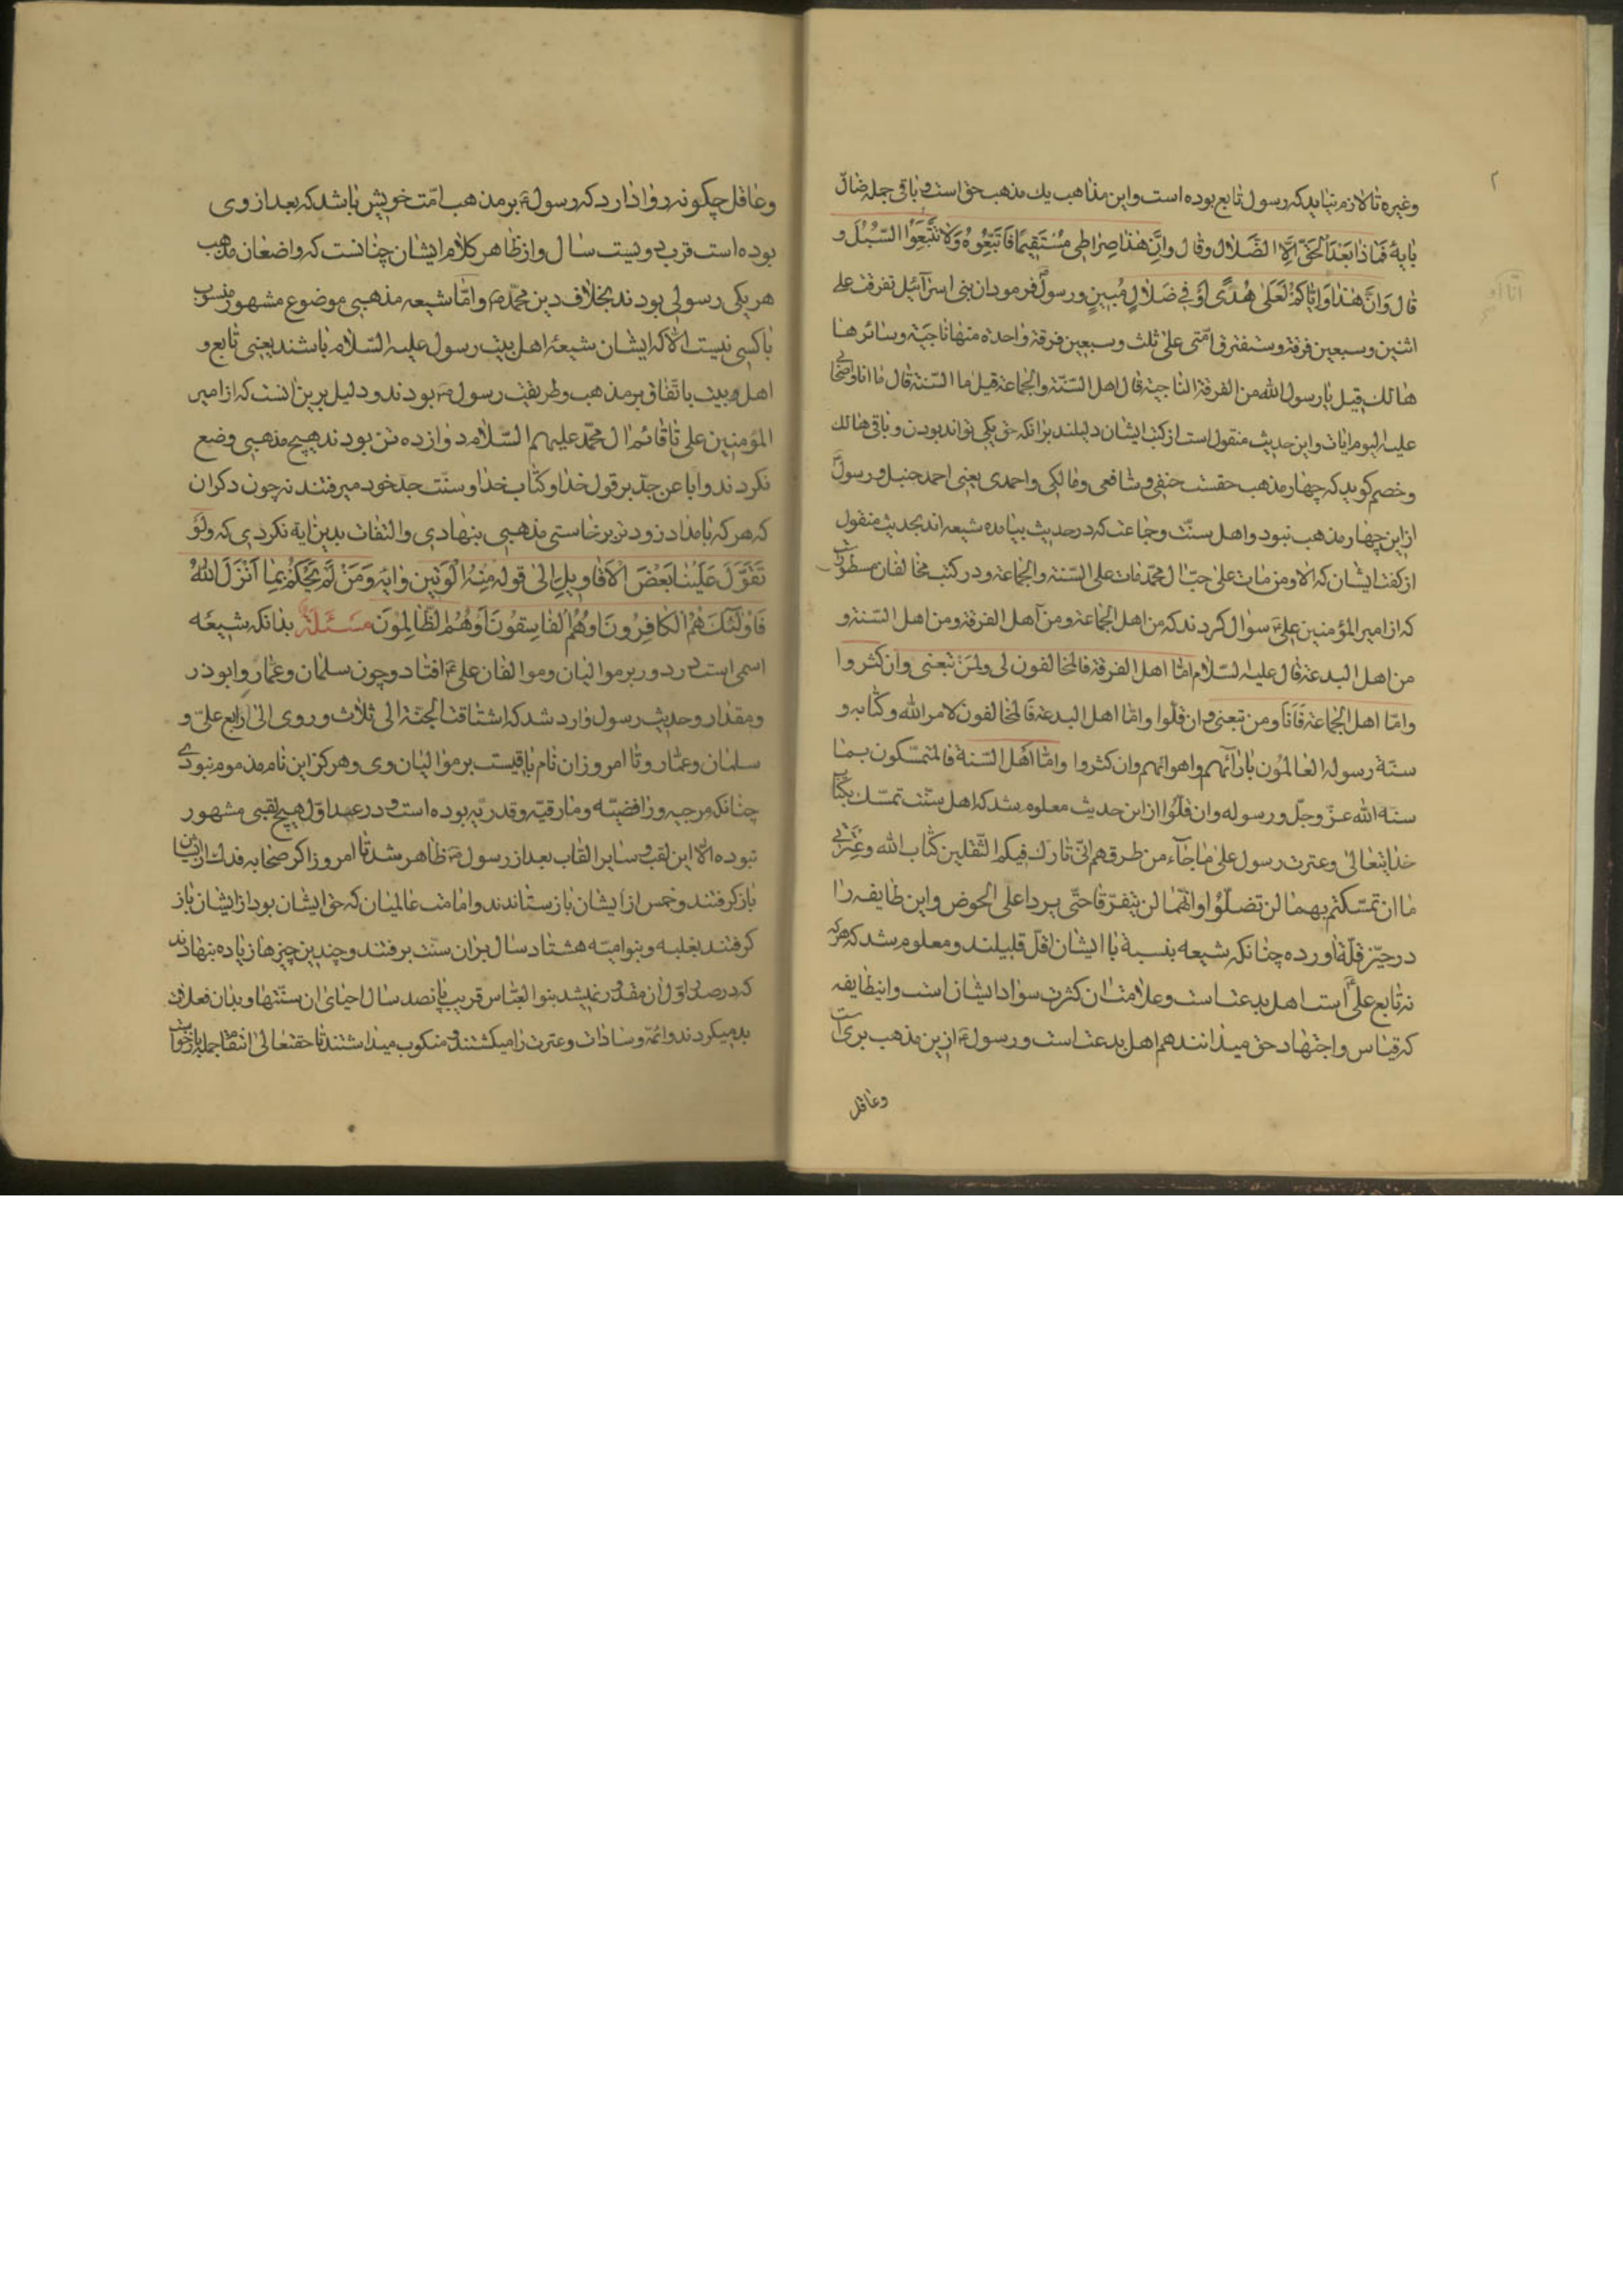 ۲
وغیره تا لازم نیاید که رسول تابع بوده است و این مذاهب یك مذهب حق است و باقی جمله ضالّ
بایة فَمَاذَا بَعْدَ الْحَقِّ اِلَّا الضَّلَالُ وقال وَاَنَّ هٰذَا صِرَاطِي مُسْتَقِيمًا فَاتَّبِعُوهُ وَلَا تَتَّبِعُوا السُّبُلَ و
قال وَاِنَّا اَوْ اِيَّاكُمْ لَعَلَىٰ هُدًى اَوْ فِي ضَلَالٍ مُبِينٍ ورسول فرمود ان بنی اسرآئیل تفرقت علی
اثنین وسبعین فرقة وستفترق امّتی علی ثلث وسبعین فرقة واحدة منها ناجیة وسائرها
هالك قیل یا رسول الله من الفرقة الناجیة قال اهل السّنّة والجماعة قیل ما السّنة قال ما انا واصحابی
علیه الیوم وایات و این حدیث منقول است از کتب ایشان دلیلند برانکه حق یکی تواند بودن و باقی هالك
وخصم کوید که چهار مذهب حقست حنفی و شافعی ومالکی واحمدی یعنی احمد حنبل و رسول
ازین چهار مذهب نبود و اهل سنّت وجماعت که در حدیث بیامده شیعه اند بحدیث منقول
از کتب ایشان که الا ومن مات علی حبّ ال محمّد مات علی السّنة والجماعة ودر کتب مخالفان مسطورست
که از امیر المؤمنین علی سؤال کردند که من اهل الجماعة ومن اهل الفرقة ومن اهل السّنة و
من اهل البدعة قال علیه السّلام امّا اهل الفرقة فالمخالفون لی ولمن تبعنی وان کثروا
وامّا اهل الجماعة فانا ومن تبعنی وان قلّوا وامّا اهل البدعة فالمخالفون لامر الله وکتابه و
سنّة رسوله العالمون بارآئهم واهوائهم وان کثروا وامّا اهل السّنة فالمتمسّکون بما
سنّه الله عزّ وجلّ ورسوله وان قلّوا از این حدیث معلوم شد که اهل سنّت تمسّك بکتاب
خدایتعالی وعترت رسول علی ما جآء من طرقهم انّی تارك فیکم الثّقلین کتاب الله وعترتی
ما ان تمسّکتم بهما لن تضلّوا وانّهما لن یتفرّقا حتّی یردا علی الحوض و این طایفه را
در حیّز قلّة اورده چنانکه شیعه بنسبة با ایشان اقلّ قلیلند ومعلوم شد که هرکه
نه تابع علی است اهل بدعتست وعلامت ان کثرت سواد ایشان است و اینطایفه
که قیاس واجتهاد حق میدانند هم اهل بدعت است ورسول ازین مذهب بریست
وعاقل
وعاقل چکونه روا دارد که رسول بر مذهب امّت خویش باشد که بعد از وی
بوده است قرب دویست سال واز ظاهر کلام ایشان چنانست که واضعان مذهب
هر یکی رسولی بودند بخلاف دین محمّد وامّا شیعه مذهبی موضوع مشهور منسوب
با کسی نیست الّا که ایشان شیعهٔ اهل بیت رسول علیه السّلام باشند یعنی تابع و
اهل بیت باتّفاق بر مذهب وطریقت رسول بودند ودلیل برین انست که از امیر
المؤمنین علی تا قائم ال محمّد علیهم السّلام دوازده تن بودند هیچ مذهبی وضع
نکردند وابا عن جدّ بر قول خدا وکتاب خدا وسنّت جد خود میرفتند نه چون دکران
که هر که بامداد زودتر برخاستی مذهبی بنهادی والتفات بدین ایة نکردی که وَلَوْ
تَقَوَّلَ عَلَيْنَا بَعْضَ الْاَقَاوِيلِ الی قوله مِنْهُ الْوَتِينَ وایه وَمَنْ لَمْ يَحْكُمْ بِمَا اَنْزَلَ اللّٰهُ
فَاُولٰئِكَ هُمُ الْكَافِرُونَ اَو هُمُ الْفَاسِقُونَ اَو هُمُ الظَّالِمُونَ مَسْئَلَة بدانکه شیعه
اسمی است در دور بر موالیان وموالفان علی افتاد وچون سلمان وعمّار وابوذر
ومقداد وحدیث رسول وارد شد که اشتاقت الجنّة الی ثلاث وروی الی اربع علیّ و
سلمان وعمّار وتا امروز ان نام باقیست بر موالیان وی وهرکز این نام مذموم نبودی
چنانکه مرجیه ورافضیّه ومارقیّه وقدریّه بوده است ودر عهد اوّل هیچ لقبی مشهور
نبوده الّا این لقب وسایر القاب بعد از رسول ظاهر شد تا امروز اکر صحابه فدك از ایشان
باز کرفتند وخمس از ایشان باز ستاندند وامامت عالمیان که حق ایشان بود از ایشان باز
کرفتند بغلبه وبنو امیّه هشتاد سال بر ان سنّت برفتند وچندین چیزها زیاده بنهادند
که در صدر اوّل ان مقدار نمیشد بنو العبّاس قریب پانصد سال احیای ان سنّتها و بدان فعلهای
بد میکردند وائمّه وسادات وعترت را میکشتند و منکوب میداشتند تا حقتعالی انتقام جمله باز خواست